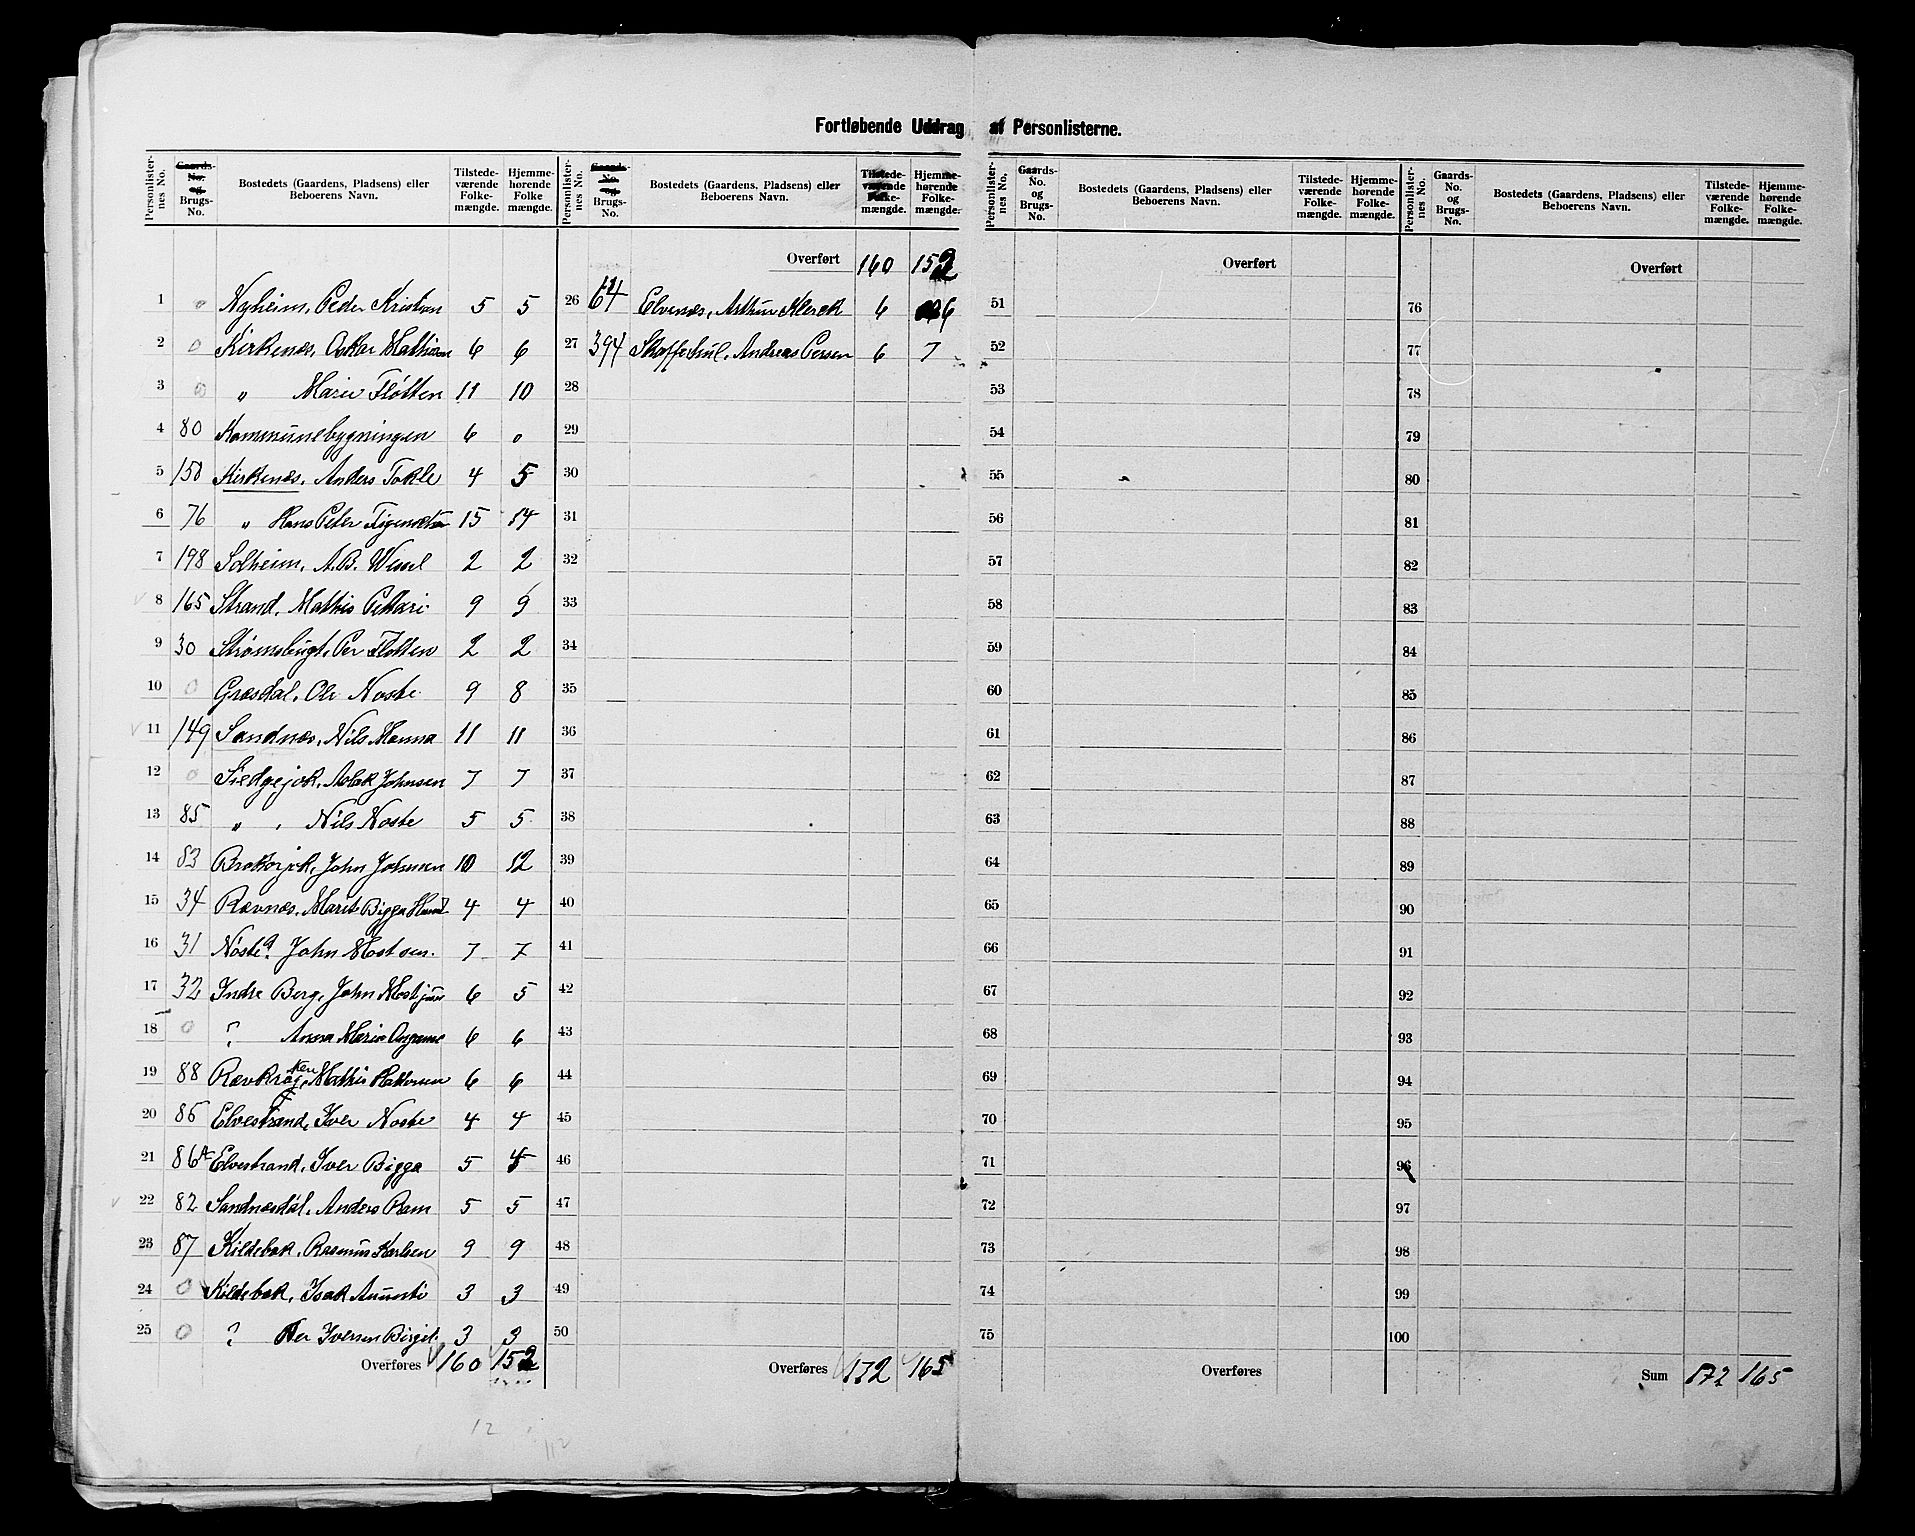 Fortløbende Uddrag af Personlisterne.
Personlister-nes No. Gaards-No. og Brugs-No. Bostedets (Gaardens, Pladsens) eller Beboerens Navn. Tilstede-værende Folke-mængde. Hjemme-hørende Folke mængde. Personlister-nes No. Gaards-No. og Brugs-No. Bostedets (Gaardens, Pladsens) eller Beboerens Navn. Tilstede-værende Folke-mængde. Hjemme-hørende Folke-mængde.
Overført 160 152
1 0 Nyheim, Peder Kristian 5 5
2 0 Kirkenæs, Oskar Mathisen 6 6
3 0 " Marie Fløtten 11 10
4 80 Kommunebygningen 6 0
5 150 Kirkenæs, Anders Tokle 4 5
6 76 " Hans Peter 15 14
7 198 Solheim, A. B. Wessel 2 2
8 165 Strand, Mathis Pettari 9 9
9 30 Strømsbugt, Per Fløtten 2 2
10 0 Græsdal, Ole Noste 9 8
11 149 Sandnæs, Nils Manna 11 11
12 0 Johnsen 7 7
13 85 " " Nils Noste 5 5
14 83 John Johnsen 10 12
15 34 Rævnæs, Marit Bigga 4 4
16 31 Noste? John 7 7
17 32 Indre Berg, John 6 5
18 0 ? Anna Marie 6 6
19 88 Mathis 6 6
20 86 Elvestrand, Iver Noste 4 4
21 86A Elvestrand, Iver Bigga 5 4
22 82 Sandnæsdal, Anders Ram 5 5
23 87 Kildebæk, Rasmus Karlsen 9 9
24 0 Kildebæk, Isak 3 3
25 0 ? Per Iversen 3 3
Overføres 160 152
26 64 Elvenæs, Arthur Klerck 6 6
27 394 Skaffehul, Andreas Persen 6 7
28
29
30
31
32
33
34
35
36
37
38
39
40
41
42
43
44
45
46
47
48
49
50
Overføres 172 165
12
112
Personlister-nes No. Gaards-No. og Brugs-No. Bostedets (Gaardens, Pladsens) eller Beboerens Navn. Tilstede-værende Folke-mængde. Hjemme-hørende Folke-mængde. Personlister-nes No. Gaards-No. og Brugs-No. Bostedets (Gaardens, Pladsens) eller Beboerens Navn. Tilstede-værende Folke-mængde. Hjemme-hørende Folke-mængde.
Overført
51
52
53
54
55
56
57
58
59
60
61
62
63
64
65
66
67
68
69
70
71
72
73
74
75
Overføres
Overført
76
77
78
79
80
81
82
83
84
85
86
87
88
89
90
91
92
93
94
95
96
97
98
99
100
Sum 172 165